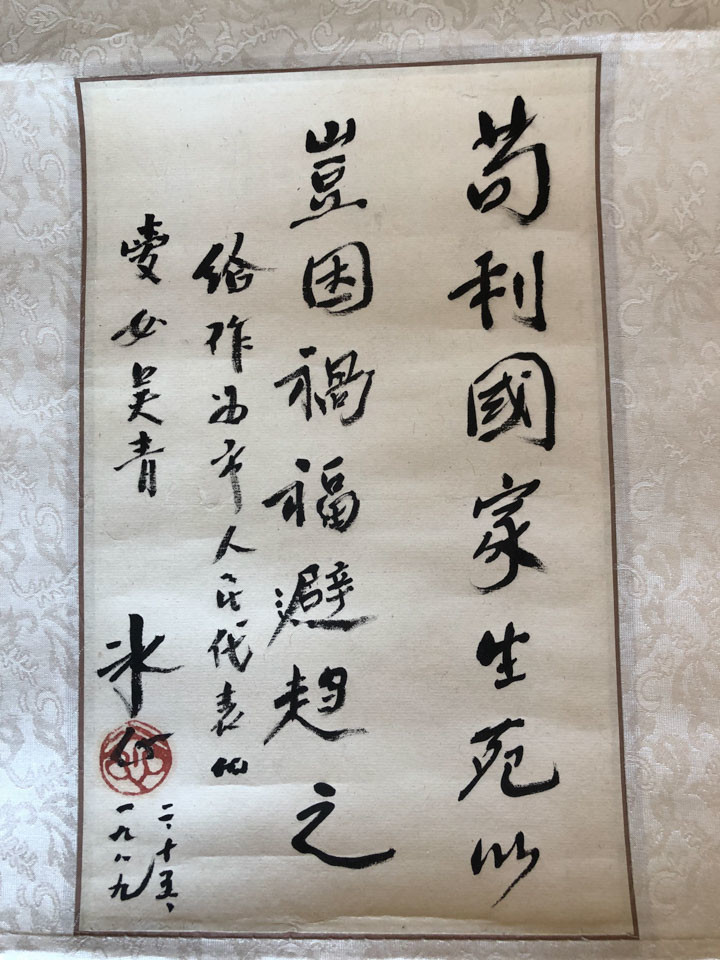 苟利國家生死以
豈因禍福避趨之
給作为市人民代表的
愛女吴青
冰心
二、十五、
一九八九